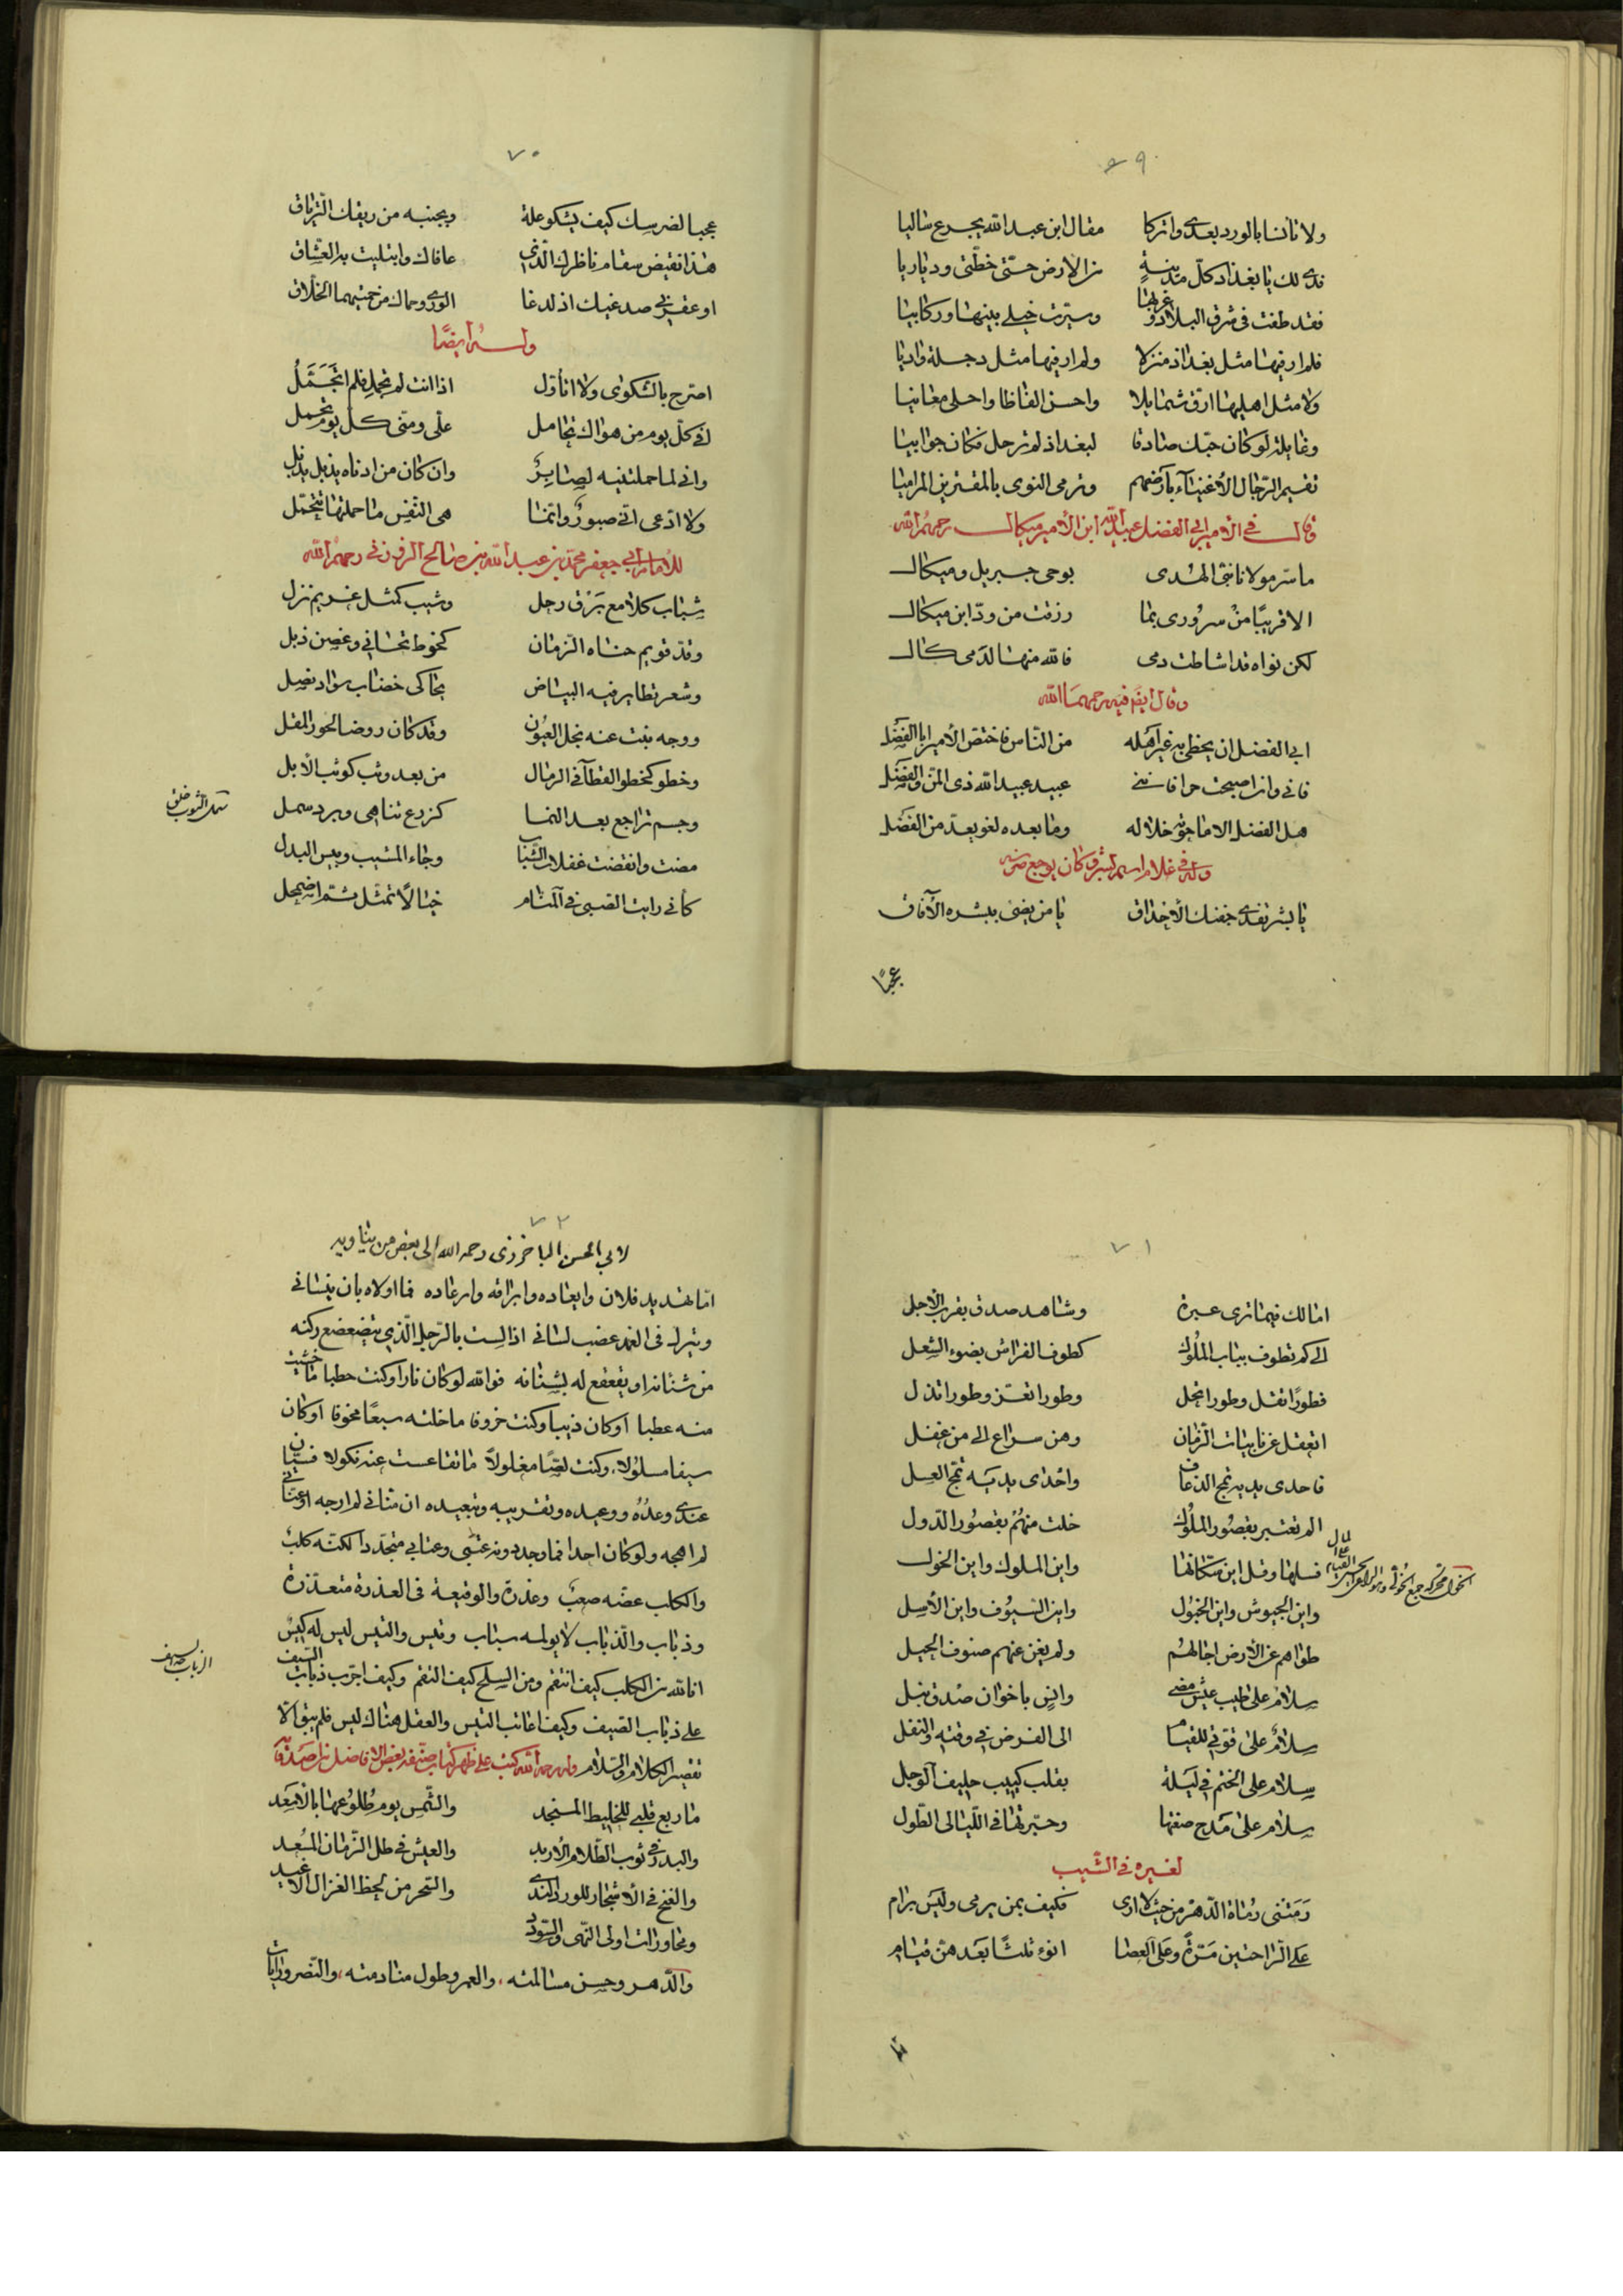 ٦٩
ولا تانسا بالورد بعدي واتركا مقال ابن عبد الله يجرع ساليا
فدى لك يا بغداد كل مدينة من الارض حتى خطتي ودياريا
فقد طفت في شرق البلاد وغربها وسيرت خيلي بينها وركابيا
فلم ار فيها مثل بغداد منزلا ولم ار فيها مثل دجلة واديا
ولا مثل اهليها ارق شمايلا واحسن الفاظا واحلى معانيا
وقايلة لو كان حبك صادقا لبغداد لم ترحل فكان جوابيا
تقيم الرجال الأغنياء بأرضهم وترمي النوى بالمقترين المراميا
قال في الأمير ابي الفضل عبيد الله ابن الأمير ميكال رحمهم الله
ما سر مولانا نبي الهدى بوحي جبريل وميكال
الا قريبًا من سروري بما رزقت من ود ابن ميكال
لكن نواه قد اشاطت دمي فالله منها لدمي كال
وقال ايضا فيه رحمهما الله
ابي الفضل ان يحظى به غير أهله من الناس فاختص الأمير ابا الفضل
فاني وان اصبحت حرا فانني عبيد عبيد الله ذي المن والفضل
هل الفضل الا ما حوته خلاله وما بعده لغو يعد من الفضل
وله في غلام اسمه بشر وكان يوجع ضرسه
يا بشر تفدي جفنك الأحداق يا من يضيء ببشره الآفاق
عجبًا
٧٠
عجبا لضرسك كيف يشكو علة وبجنبه من ريقك الترياق
هذا نقيض سقام ناظرك الذي عافاك وابتليت به العشاق
او عقربي صدغيك اذ لدغا الورى وحماك من حمتيهما الخلاق
وله أيضًا
اصرح بالشكوى ولا اتأول اذا انت لم تجمل فلم اتجمل
افي كل يوم من هواك تحامل علي ومني كل يوم تحمل
واني لما حملتنيه لصابر وان كان من ادناه يذبل يذبل
ولا ادعي اني صبور وانما هي النفس ما حملتها تتحمل
للامام ابي جعفر محمد بن عبد الله بن صالح الزوزني رحمهم الله
شباب كلامع برق رحل وشيب كمثل غريم نزل
وقد قويم حناه الزمان كخوط تحاني وغصن ذبل
وشعر تطاير فيه البياض يحاكي خضاب سواد نصل
ووجه نبت عنه نجل العيون وقد كان روضا لحور المقل
وخطو كخطو القطا في الرمال من بعد وثب كوثب الأبل
وجسم تراجع بعد النما كزرع تناهى وبرد سمل
سمل الثوب خلق
مضت وانقضت غفلات الشباب وجاء المشيب وبيس البدل
كأني رايت الصبى في المنام خيالاً تمثل ثم اضمحل
٧١
امالك فيما ترى عبرة وشاهد صدق بقرب الاجل
الى كم تطوف بباب الملوك كطوف الفراش بضوء الشعل
فطورًا تقل وطورا تجل وطورا تعز وطورا تذل
اتغفل عن نايبات الزمان وهن سراع الى من غفل
فاحدى يديه تمج الذعاف واخرى يديه تمج العسل
الم تعتبر بقصور الملوك خلت منهم بقصور الدول
فسلها وقل اين سكانها واين الملوك واين الخول
واين الجيوش واين الخيول واين السيوف واين الأسل
طواهم عن الأرض اجالهم ولم يغن عنهم صنوف الحيل
سلام على طيب عيش مضى وانس باخوان صدق نبل
سلام على قوتي للقيام الى الفرض في وقته والنفل
سلام على الختم في ليلة بقلب كئيب حليف الوجل
سلام على مدح صغتها وحبرتها في الليالي الطول
لغيره في الشيب
رمتني رماة الدهر من حيث لا ارى فكيف بمن يرمى وليس برام
على الراحتين مرة وعلى العصا انوء ثلثًا بعدهن قيام
٧٢
لابي الحسن الباخرزي رحمه الله الى بعض من يناويه
اما تهديد فلان وايعاده وابراقه وارعاده فما اولاه بان ينساني
ويترك في الغمد عضب لساني اذ لست بالرجل الذي يتضعضع ركنه
من شنانه او يقعقع له بشنانه فوالله لو كان نارا وكنت حطبا ما خشيت
منه عطبا او كان ذيبا وكنت خروفا ما خلته سبعًا مخوفا او كان
سيفا مسلولا وكنت لصًا مغلولاً ما تقاعست عنه نكولا فسيان
عندي وعده ووعيده وتقريبه وتبعيده ان مناني لم ارجه او عناني
لم اهجه ولو كان احدا فما وجد دونه عتبى وعتابي متجددا لكنه كلب
والكلب عضه صعب وعذرة والوقيعة في العذرة متعذرة
وذباب والذباب لا يولمه سباب وتيس والتيس ليس له كيس
انا لله من الكلب كيف انتقم ومن السلح كيف التقم وكيف اجرب ذباب السيف
على ذباب الصيف وكيف اعاتب التيس والعقل هناك ليس فلم يبق الا
تقصير الكلام والسلام وله رحمه الله كتب على ظهر كتاب صنفه بعض الافاضل من اصدقائه
ما ربع قلبي للخليط المنجد والشمس يوم طلوعها بالاسعد
والبدر في ثوب الظلام الاربد والعيش في ظل الزمان المسعد
والغنج في الأشجار للورد الندي والسحر من لحظ الغزال الاغيد
ومحاورات اولى النهى والسودد
والدهر وحسن مسالمته، والعمر وطول منادمته، والنصر ورايات